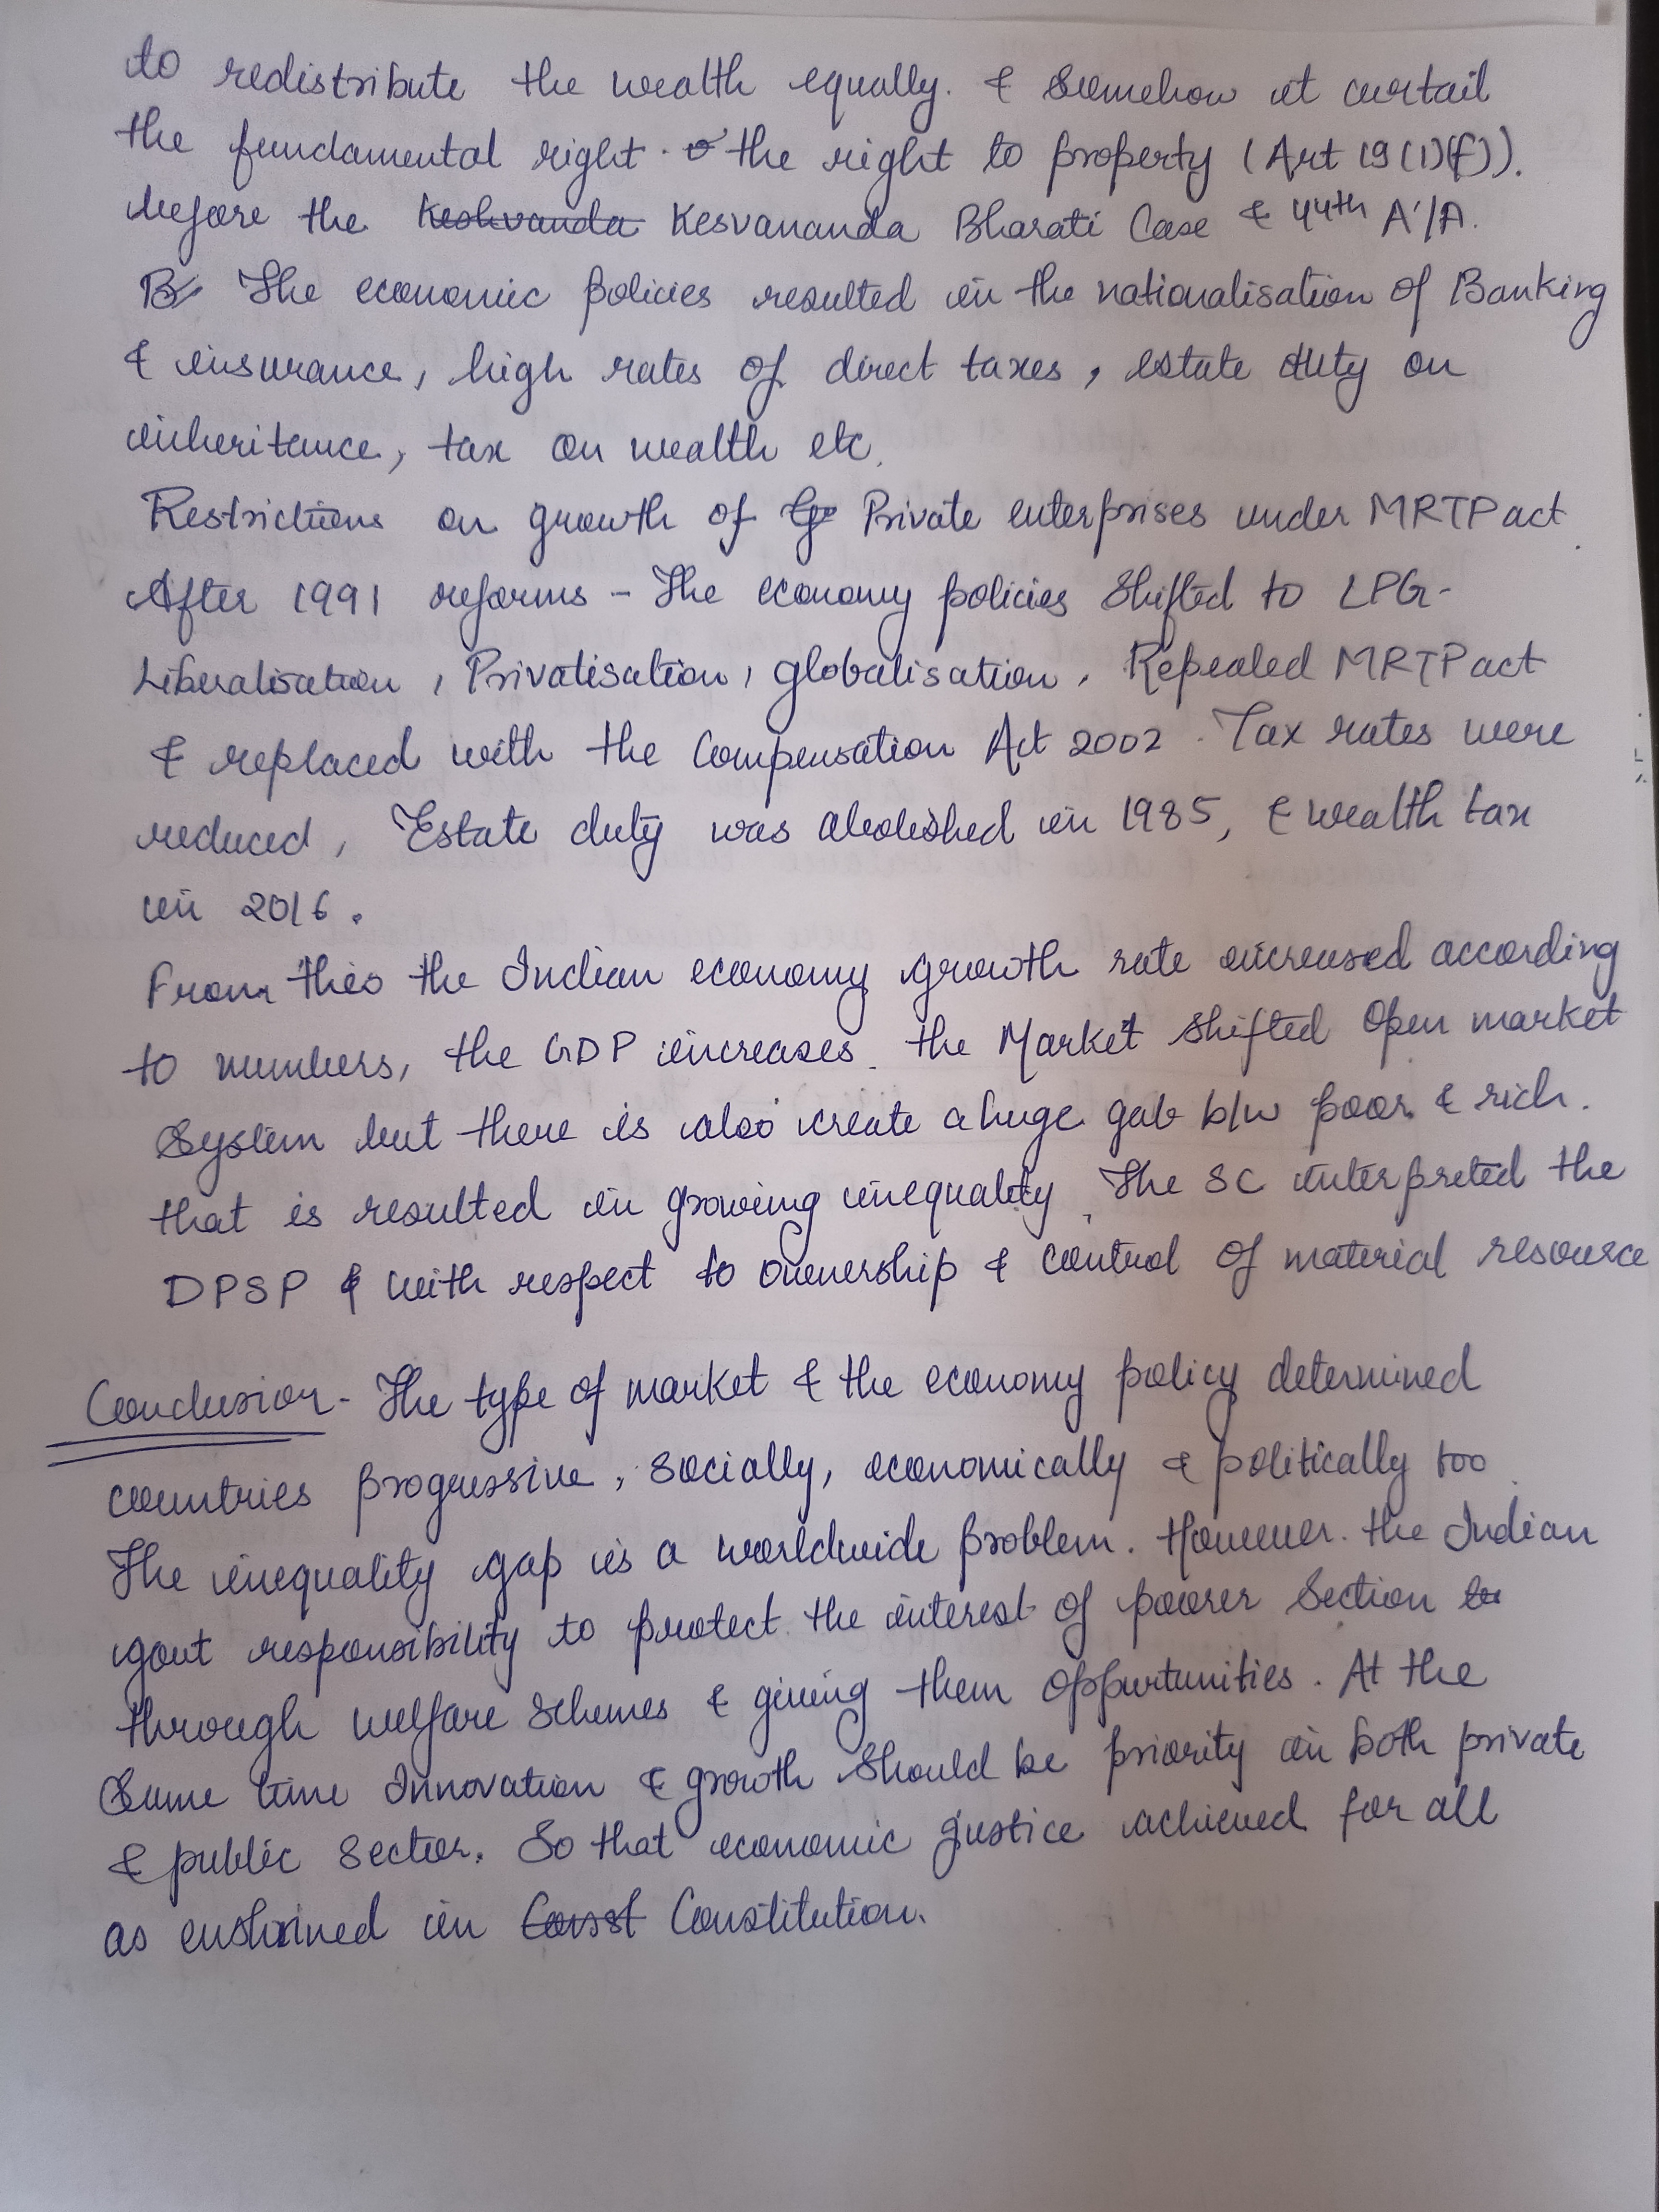 to redistribute the wealth equally. & somehow it curtail
the fundamental right. the right to property (Art 19(1)(f)).
before the Keshvanda Kesvananda Bharati Case & 44th A'/A.
The economic policies resulted in the nationalisation of Banking
& insurance, high rates of direct taxes, estate duty on
inheritance, tax on wealth etc.
Restrictions on growth of Private enterprises under MRTP act.
After 1991 reforms - The economy policies shifted to LPG-
Liberalisation, Privatisation, globalisation. Repealed MRTP act
& replaced with the Compensation Act 2002. Tax rates were
reduced, Estate duty was abolished in 1985, & wealth tax
in 2016.
From this the Indian economy growth rate increased according
to numbers, the GDP increases. the Market shifted Open market
System but there is also create a huge gab b/w poor & rich.
that is resulted in growing inequality. The SC interpreted the
DPSP & with respect to ownership & control of material resource
Conclusion - The type of market & the economy policy determined
countries progressive, socially, economically & politically too.
The inequality gap is a worldwide problem. However. the Indian
govt responsibility to protect the interest of poorer section
through welfare schemes & giving them oppurtunities. At the
same time Innovation & growth should be priority in both private
& public sector. So that economic justice achieved for all
as enshrined in Const Constitution.